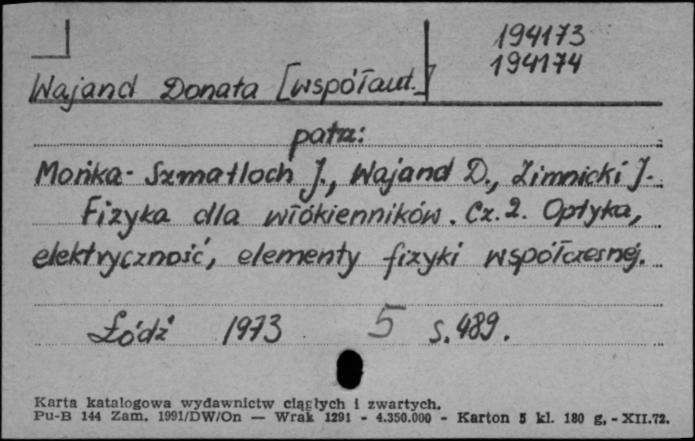 194173
194174
Wajand Donata [współaut.]
patrz:
Mońka-Szmatłoch J., Wajand D., Zimnicki J.
Fizyka dla włókienników. Cz. 2. Optyka,
elektryczność, elementy fizyki współczesnej.
Łódź 1973 5 s. 489.
Karta katalogowa wydawnictw ciągłych i zwartych.
Pu-B 144 Zam. 1991/DW/On — Wrak 1291 - 4.350.000 - Karton 5 kl. 180 g. - XII.72.